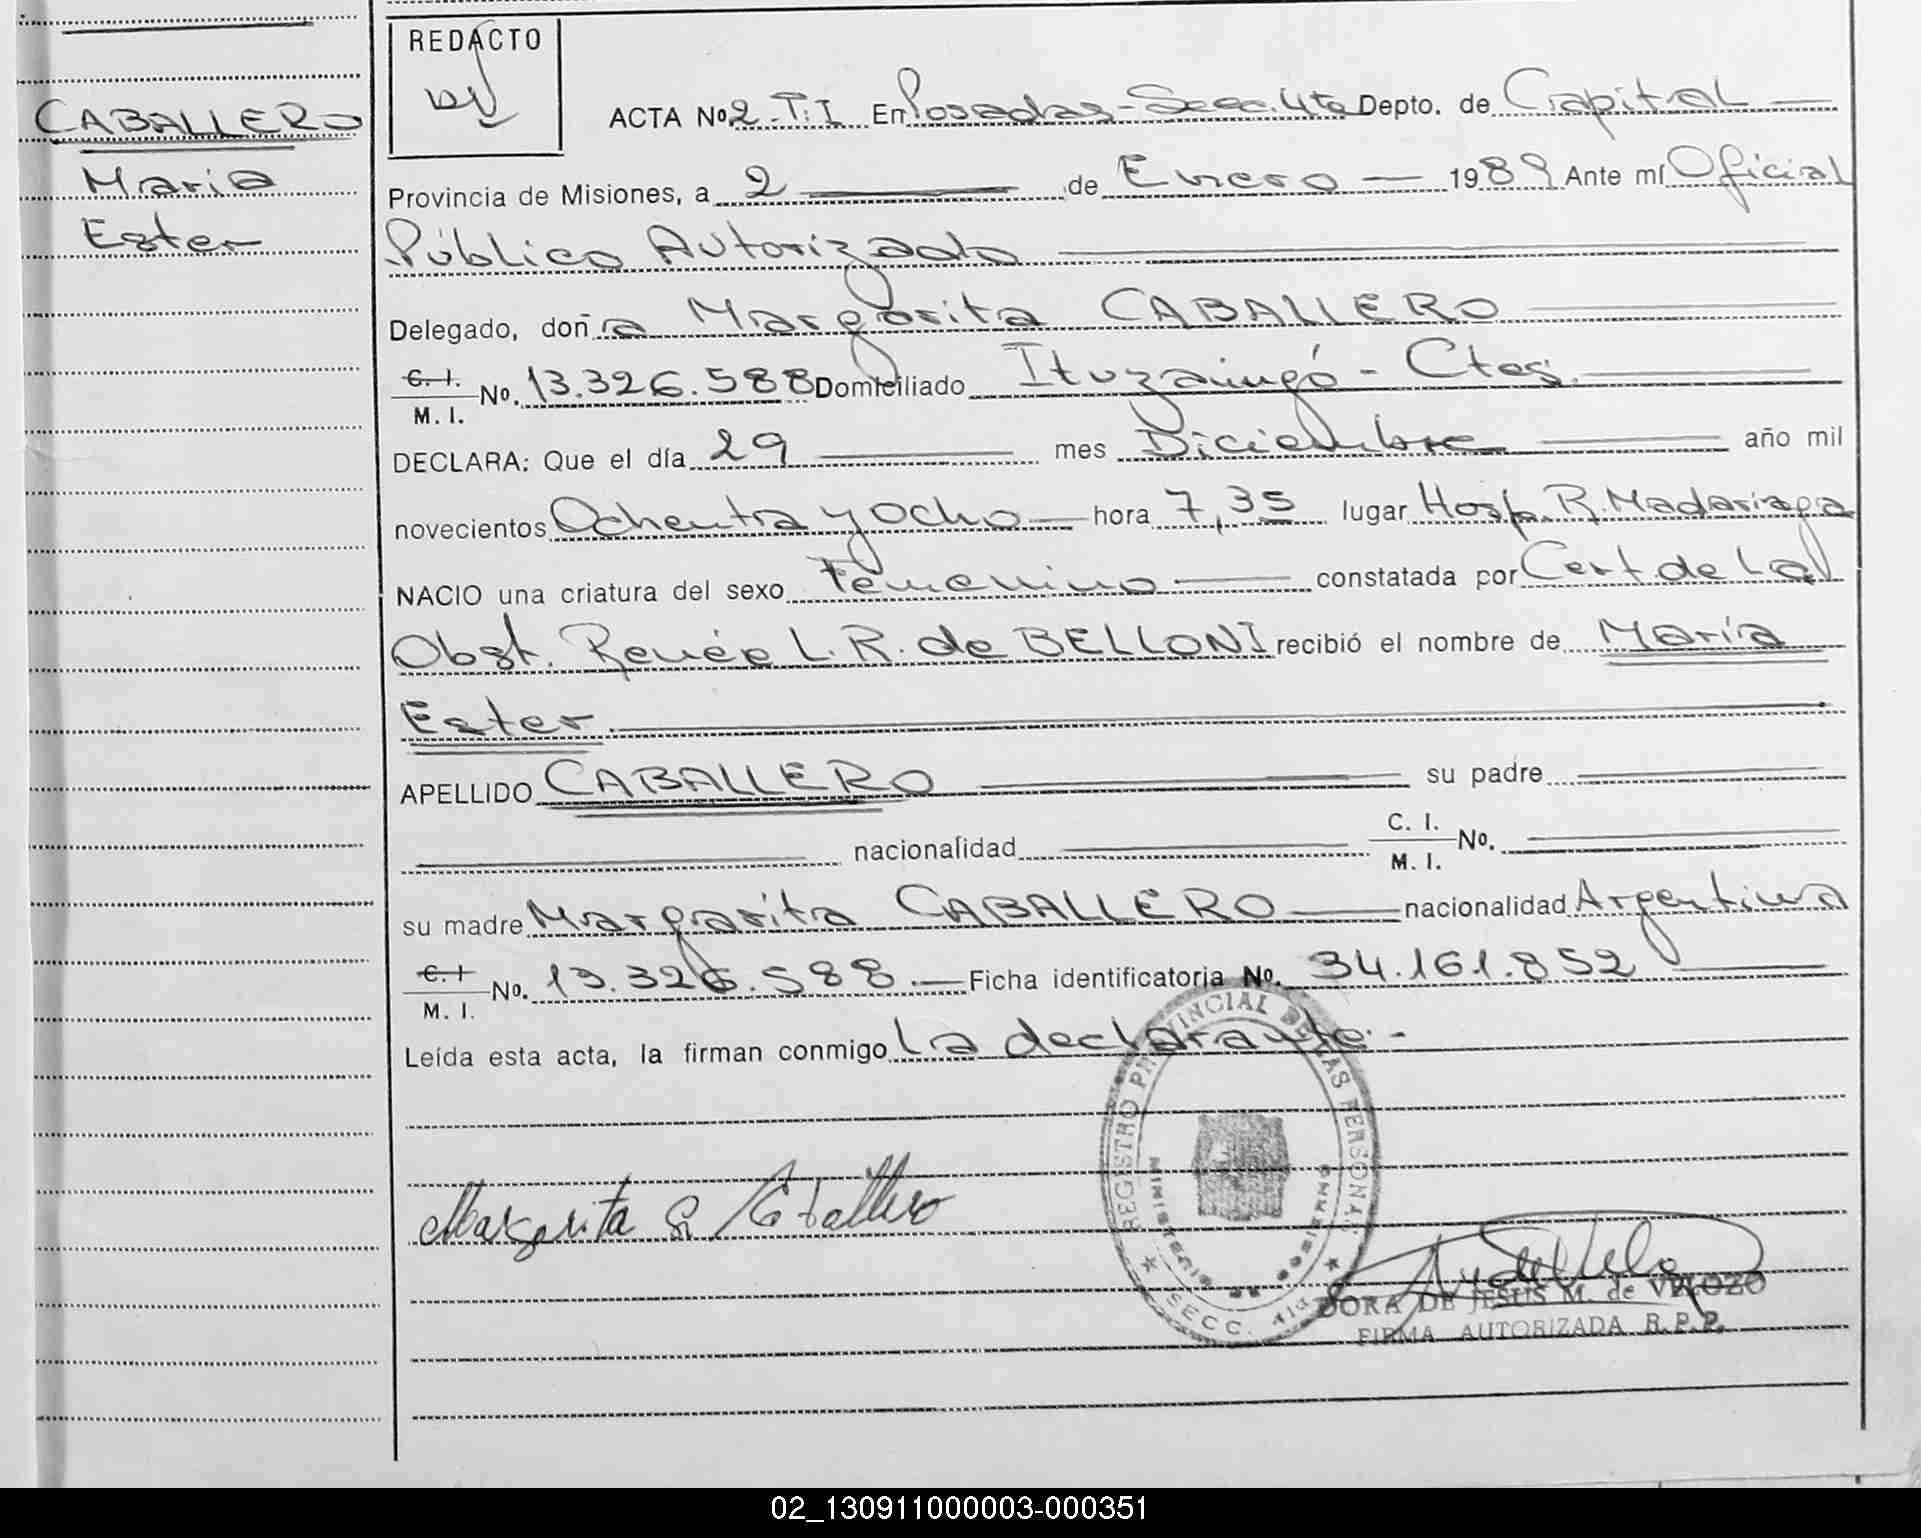 CABALLERO
Maria
Ester
REDACTO
ACTA Nº 2-T:I En Posadas-Secc.4ta Depto. de Capital
Provincia de Misiones, a 2 de Enero 1989 Ante mí Oficial
Público Autorizado
Delegado, doña Margarita CABALLERO
C. I. / M. I. Nº. 13.326.588 Domiciliado Ituzaingó - Ctes.
DECLARA: Que el día 29 mes Diciembre año mil
novecientos Ochenta y Ocho hora 7,35 lugar Hosp. R. Madariaga
NACIO una criatura del sexo Femenino constatada por Cert de La
Obst. Renée L. R. de BELLONI recibió el nombre de María
Ester
APELLIDO CABALLERO su padre
nacionalidad C. I. / M. I. Nº.
su madre Margarita CABALLERO nacionalidad Argentina
C. I / M. I. Nº. 13.326.588.- Ficha identificatoria Nº. 34.161.852
Leída esta acta, la firman conmigo La declarante.-
REGISTRO PROVINCIAL DE LAS PERSONAS
MINISTERIO DE GOBIERNO
SECC. 4ta
Margarita Caballero
DORA DE JESUS M. de VELOZO
FIRMA AUTORIZADA R.P.P.
02_130911000003-000351